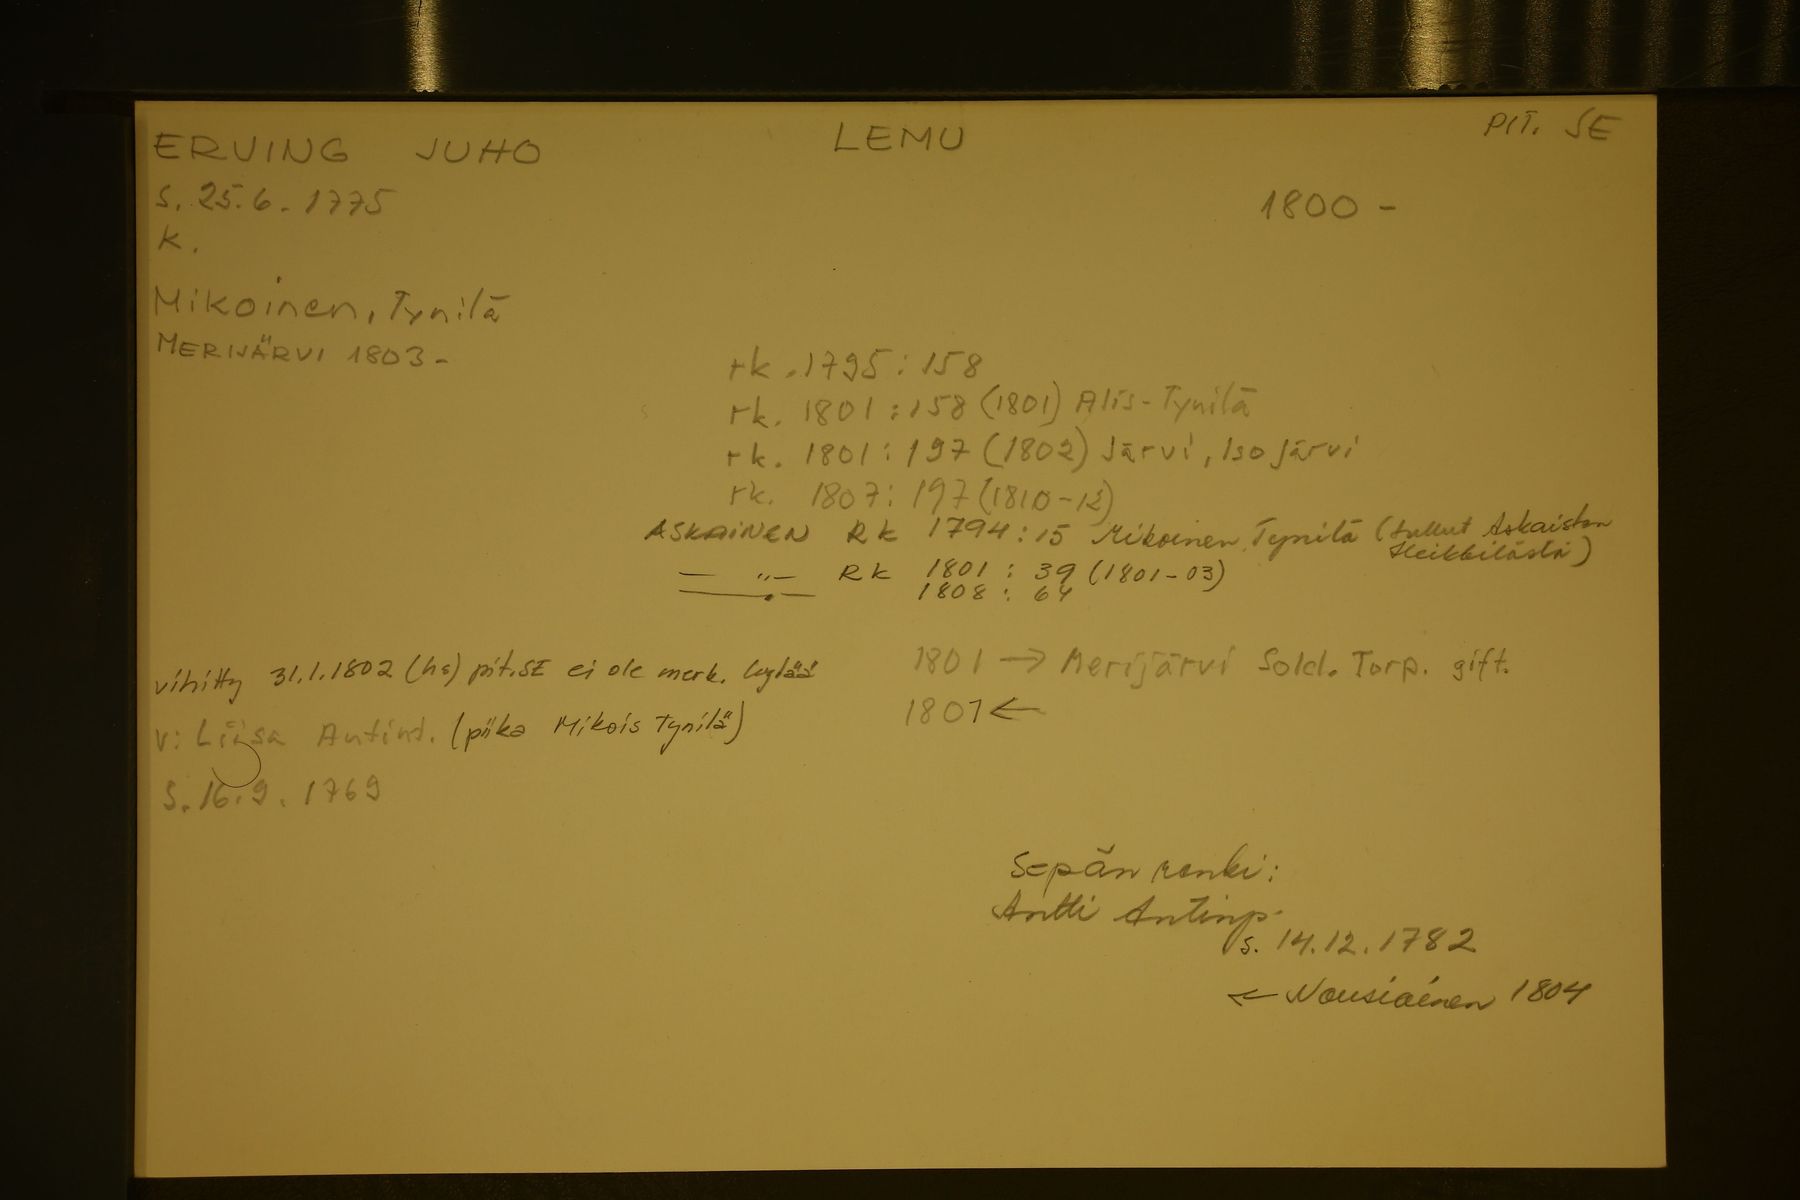 ERVING JUHO LEMU PIT. SE
s. 25.6. 1775 1800 -
k.
Mikoinen, Tynilä
MERIJÄRVI 1803 -
rk. 1795 : 158
rk. 1801 : 158 (1801) Alis-Tynilä
rk. 1801 : 197 (1802) Järvi, Iso Järvi
rk. 1807 : 197 (1810-12)
ASKAINEN RK 1794 : 15 Mikoinen Tynilä (tullut Askaisten
Heikkilästä)
— " — RK 1801 : 39 (1801-03)
— " — 1808 : 64
vihitty 31.1.1802 (hs) pit.SE ei ole merk. kylää
1801 → Merijärvi Sold. Torp. gift.
v: Liisa Antint. (piika Mikois Tynilä)
1801 ←
s. 16.9. 1769
Sepän renki:
Antti Antinp.
s. 14.12.1782
← Nousiainen 1804